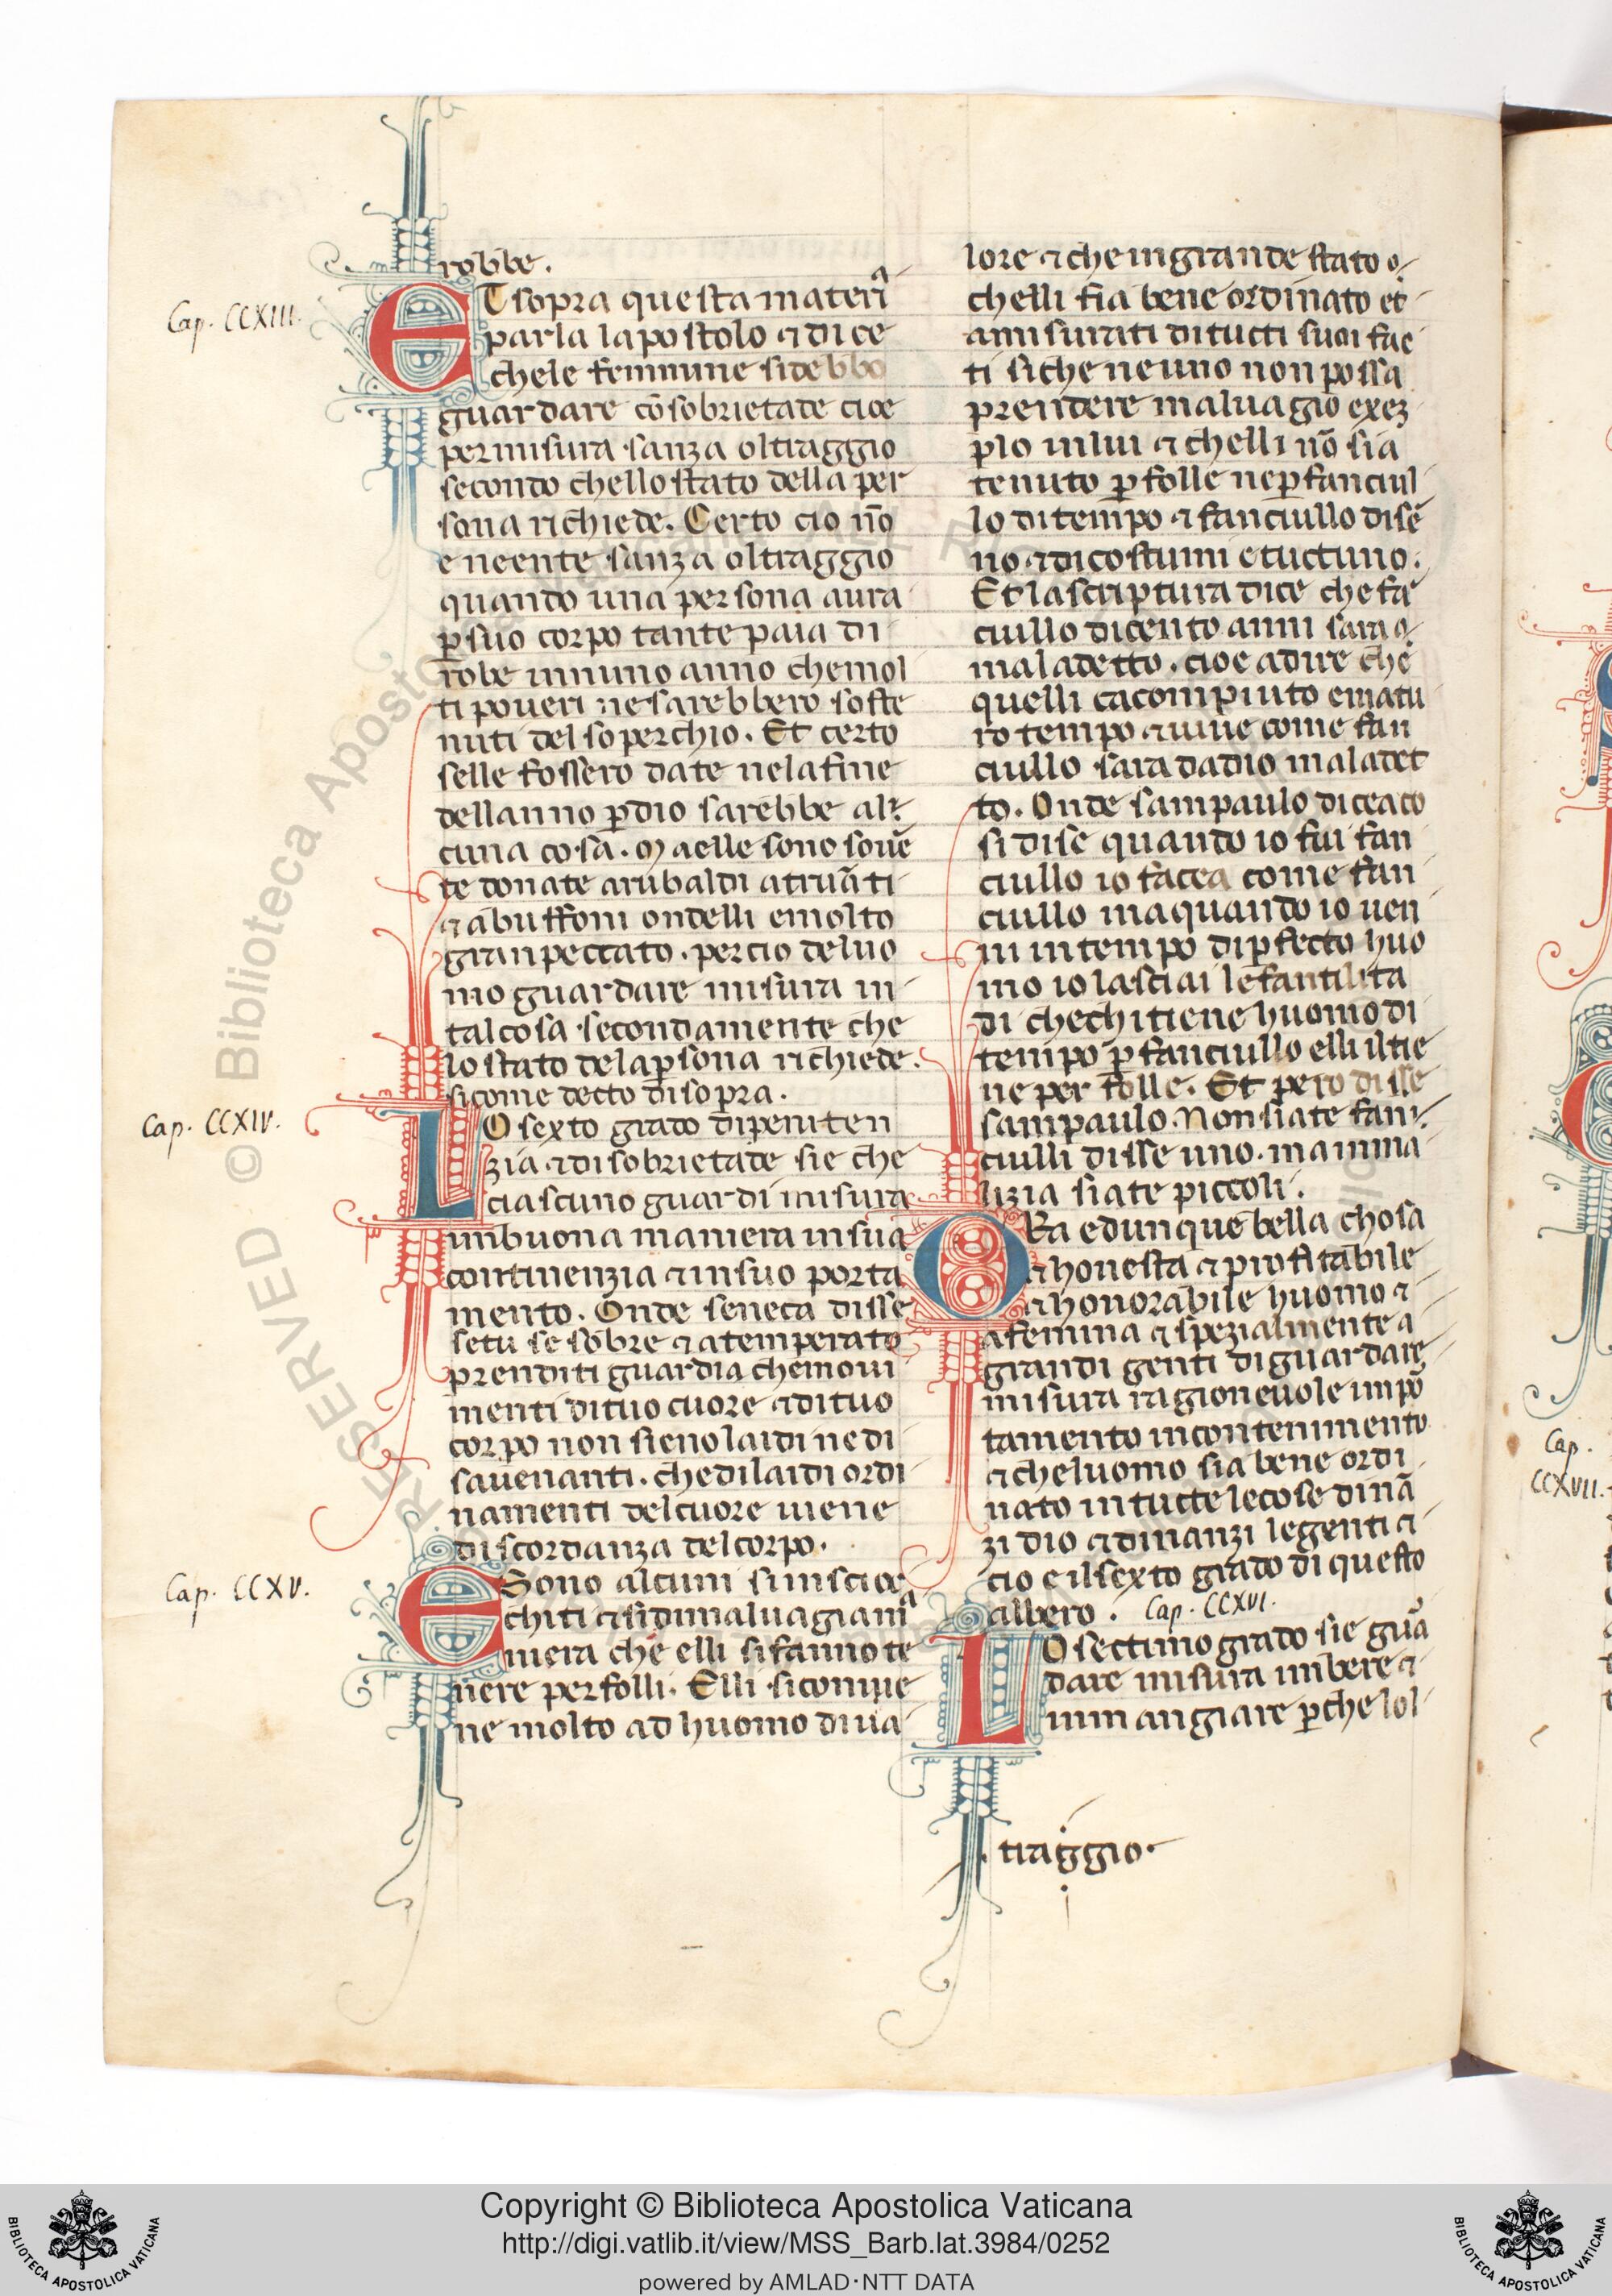 robbe.
Cap. CCXIII.
ET sopra questa materia
parla lapostolo ⁊ dice
chele femmine sidebbo
guardare cōsobrietade cioe
permisura sanza oltraggio
secondo chello stato della per
sona richiede. Certo cio nō
e neente sanza oltraggio
quando una persona aura
ꝑsuo corpo tante paia di
robe innuno anno chemol
ti poueri ne sarebbero soste
nuti del soperchio. Et certo
selle fossero date nela fine
dellanno ꝑdio sarebbe al
cuna cosa. Maelle sono souē
te donate arubaldi atruāti
⁊ abuffoni ondelli emolto
gran peccato. percio deluo
mo guardare misura in
tal cosa secondamente che
lo stato delaꝑsona richiede.
sicome decto disopra.
Cap. CCXIV.
LO sexto grado dipeniten
zia ⁊ di sobrietade sie che
ciascuno guardi misura
inbuona maniera insua
continenzia ⁊ insuo porta
mento. Onde seneca disse
setu se sobre ⁊ atemperato
prenditi guardia chemoui
menti dituo cuore ⁊ dituo
corpo non sieno laidi ne di
sauenanti. chedilaidi ordi
namenti delcuore uiene
discordanza delcorpo.
Cap. CCXV.
E Sono alcuni siniscioc
chiti ⁊ sidimaluagia ma
niera che elli sifanno te
nere per folli. Elli siconuie
ne molto ad huomo diua
lore ⁊ che ingrande stato
chelli sia bene ordinato et
amisurati ditucti suoi fac
ti siche neuno non possa
prendere maluagio exez
plo inlui ⁊ chelli nō sia
tenuto ꝑ folle neꝑfanciul
lo di tempo ⁊ fanciullo disē
no ⁊ dicostumi etuctuno.
Et lascriptura dice che fā
ciullo dicento anni sara
maladetto. cioe adire che
quelli cacompiuto ematu
ro tempo ⁊ uiue come fan
ciullo sara dadio maladet
to. Onde sampaulo diceaco
si dise quando io fui fan
ciullo io facea come fan
ciullo maquando io uen
ni intempo diꝑfecto huo
mo io lasciai lefantilita
di chechitiene huomo di
tempo ꝑ fanciullo elli iltie
ne per folle. Et pero disse
sampaulo. Non siate fan
ciulli disse uno. mainma
lizia siate piccoli.
ORa edunque bella chosa
⁊ honesta ⁊ profitabile
⁊ honorabile huomo ⁊
afemina ⁊ spezialmente a
grandi genti diguardare
misura ragioneuole inpor
tamento incontenimento
⁊ cheluomo sia bene ordi
nato intucte lecose dinā
zi dio ⁊ dinanzi legenti ⁊
cio e ilsexto grado di questo
albero. Cap. CCXVI.
LO sectimo grado sie guar
dare misura inbere ⁊
inmangiare ꝑche lol
traggio.
Cap.
CCXVII.
© Biblioteca Apostolica Vaticana
Copyright © Biblioteca Apostolica Vaticana
http://digi.vatlib.it/view/MSS_Barb.lat.3984/0252
powered by AMLAD·NTT DATA
BIBLIOTECA APOSTOLICA VATICANA
BIBLIOTECA APOSTOLICA VATICANA